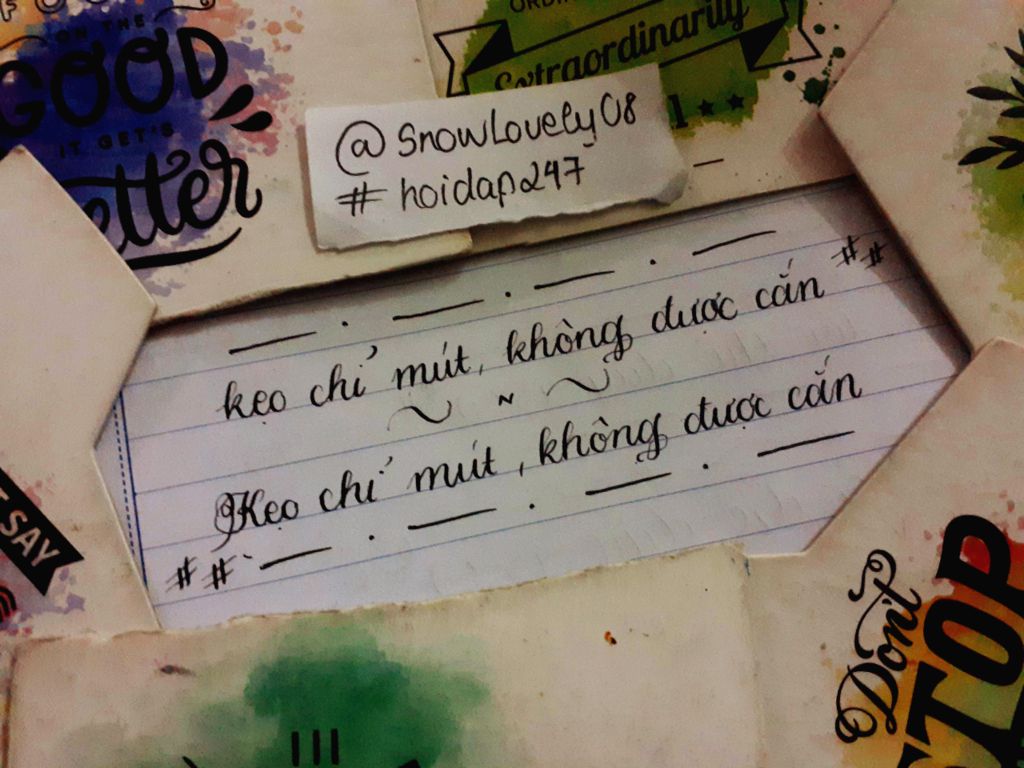 ON THE
GOOD
IT GET'S
Extraordinarily
@SnowLovely08
# hoidap247
kẹo chỉ mút, không được cắn ##
~ N ~
Kẹo chỉ mút, không được cắn
##
SAY
Don't
STOP